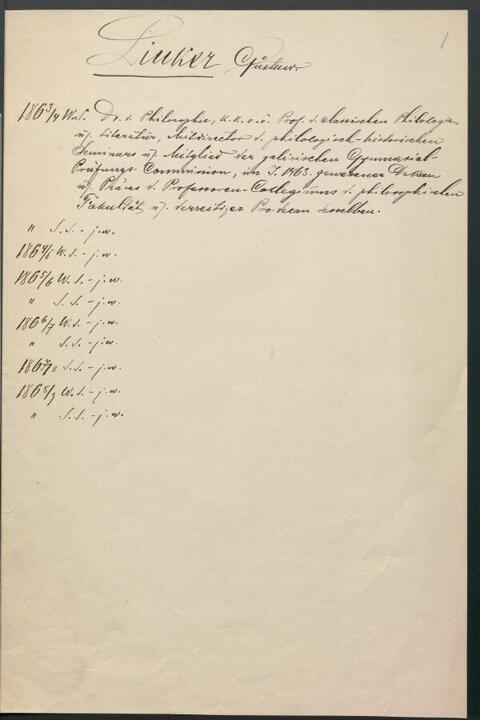 1
Linker Gustav
1863/4 W.S. Dr. d. Philosophie, k.k. o.ö. Prof. d. classischen Philologie
u. Literatur, Mitdirector d. philologisch-historischen
Seminars u. Mitglied der galizischen Gymnasial-
Prüfungs-Commission, im J. 1863. gewesener Dekan
u. Präses d. Professoren-Collegiums d. philosophischen
Fakultät u. derzeitiger Prodecan derselben.
" S.S. - j.w.
1864/5 W.S. - j.w.
1865/6 W.S. - j.w.
" S.S. - j.w.
1866/7 W.S. - j.w.
" S.S. - j.w.
1867/8 S.S. - j.w.
1868/9 W.S. - j.w.
" S.S. - j.w.